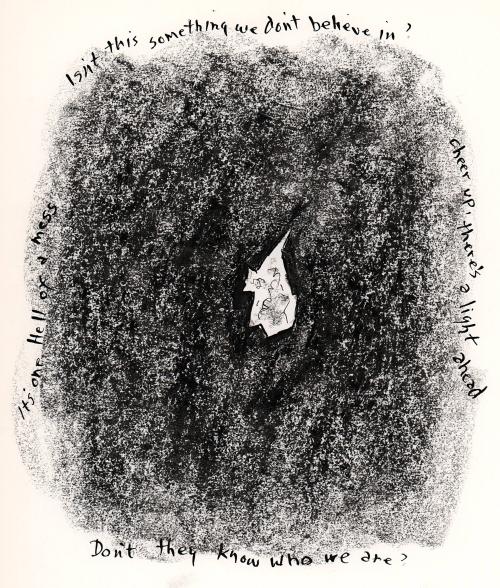 Isn't this something we don't believe in?
cheer up, there's a light ahead
Don't they know who we are?
Its one Hell of a mess